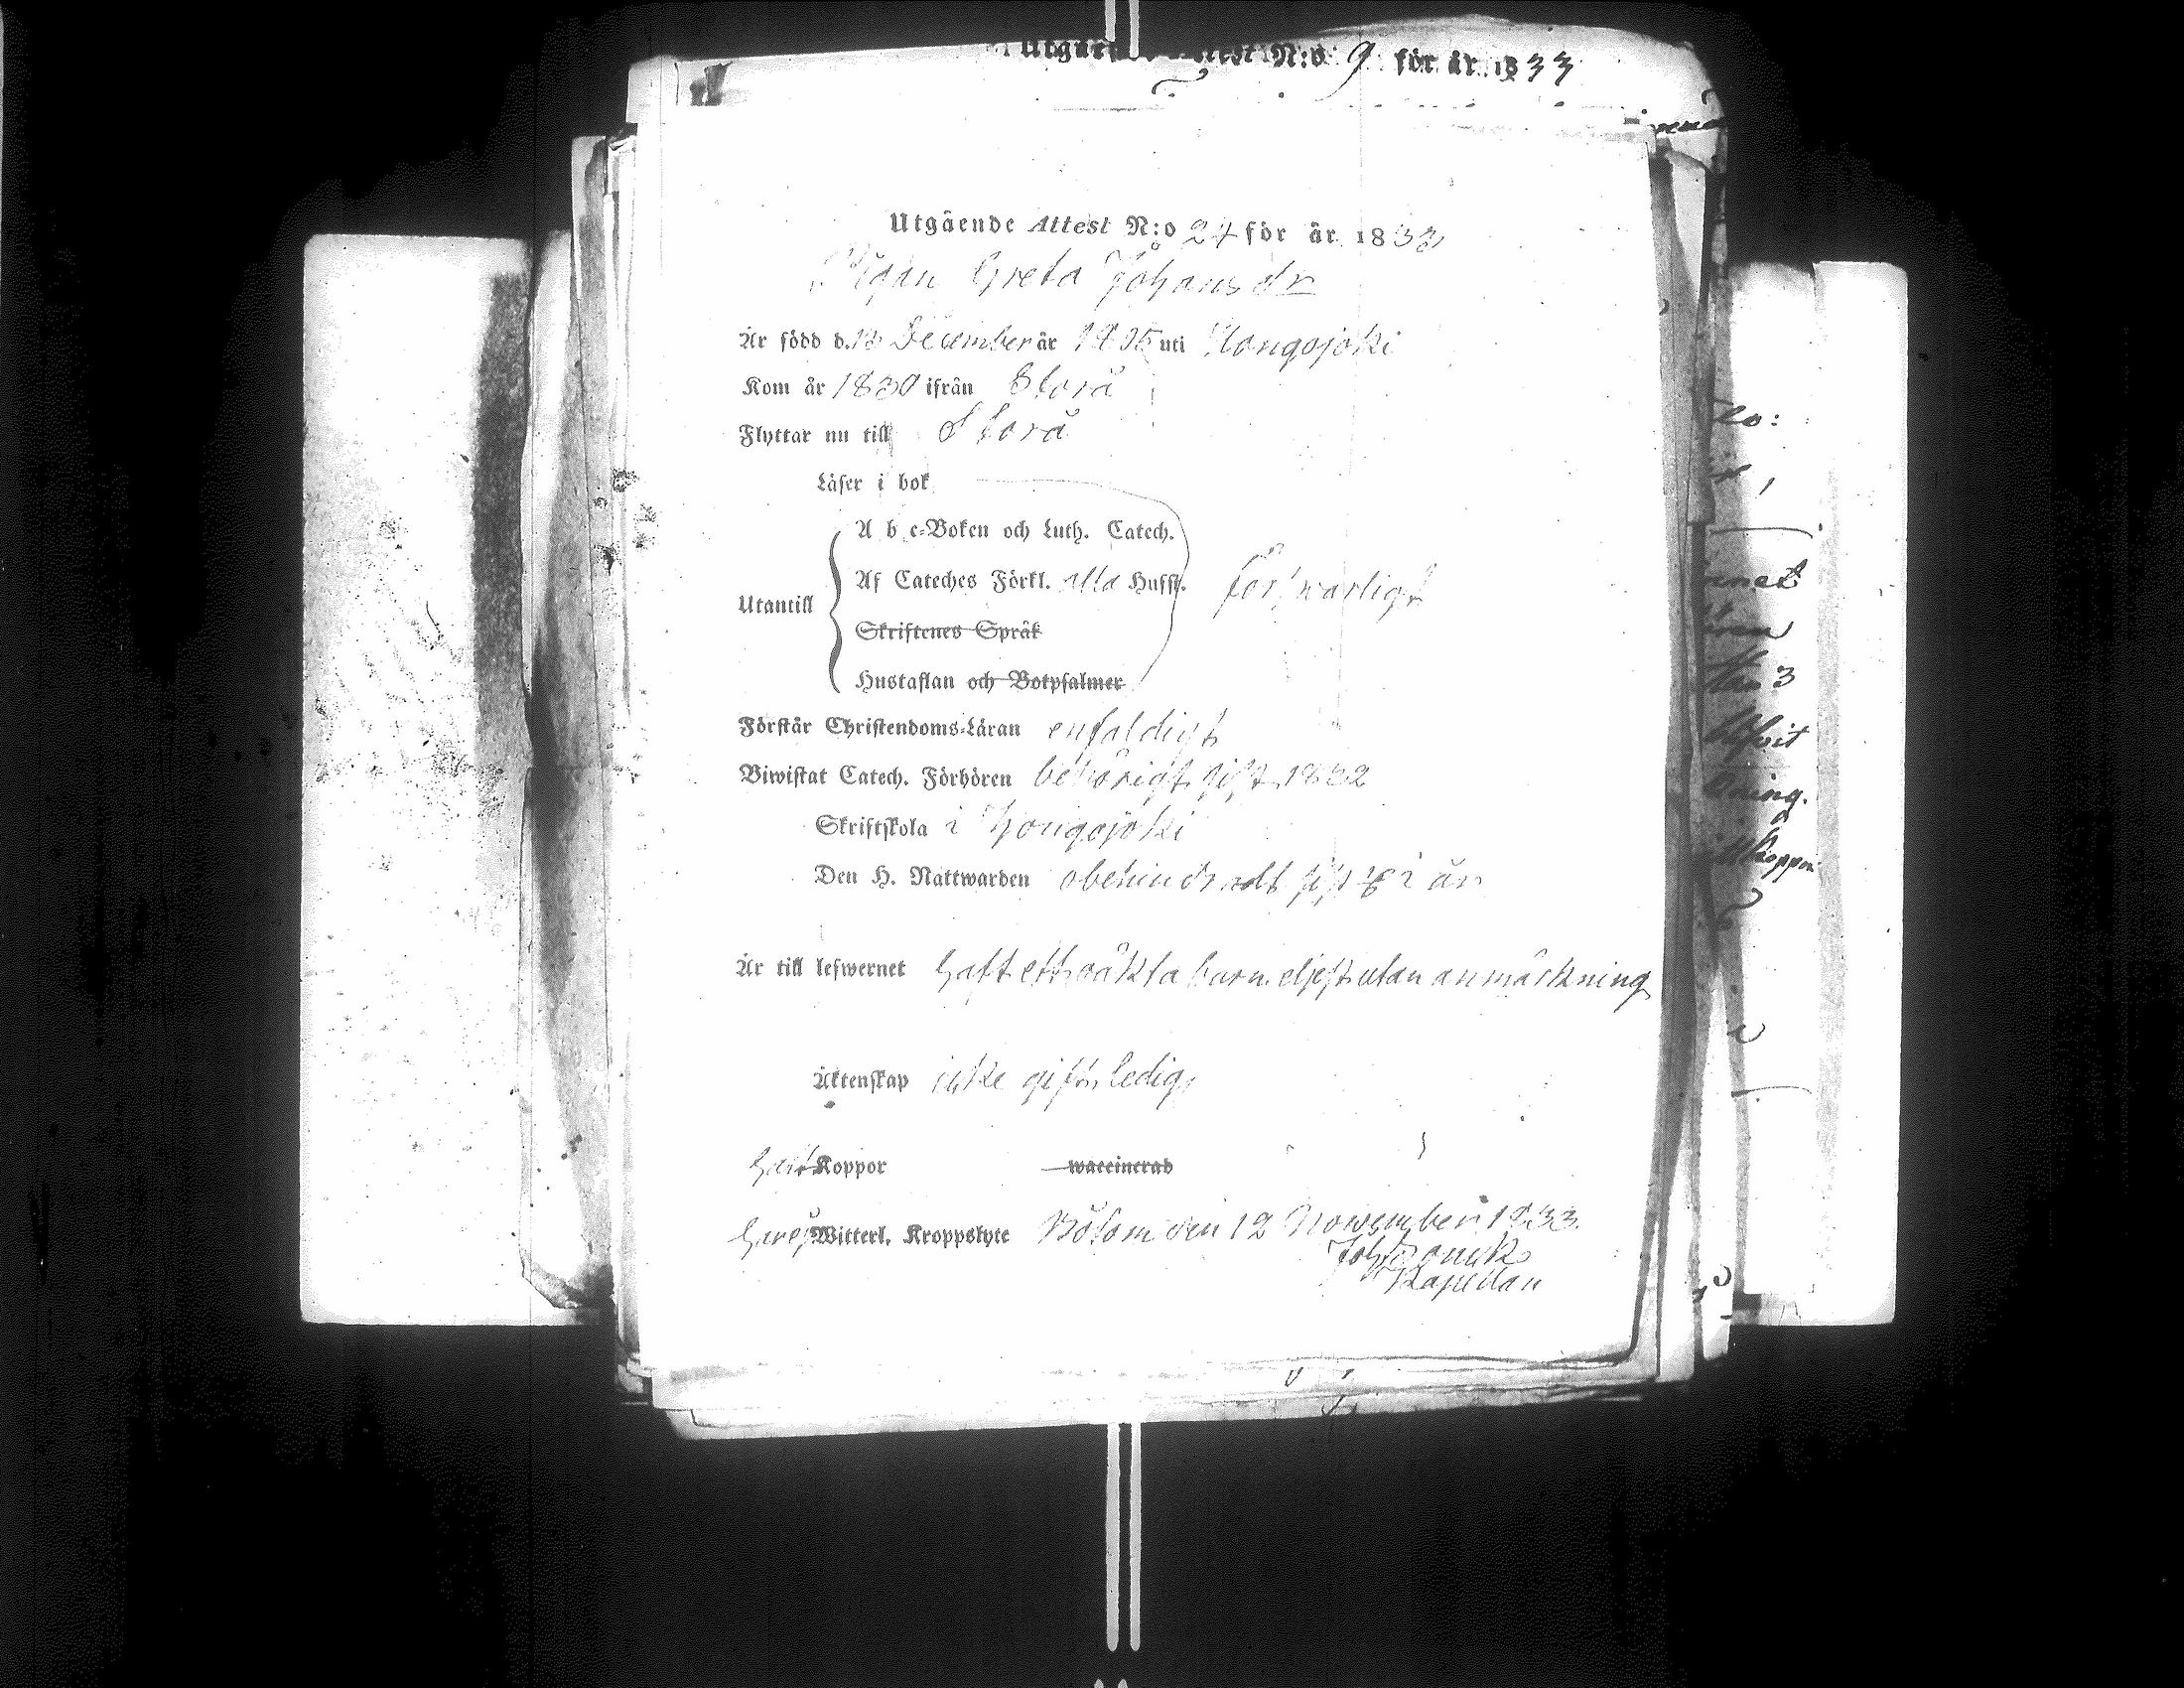 N:o 9 för år 1833
Utgående Attest N:o 24 för år 1833
Pigan Greta Johansdr
Är född d. 13 December år 1805 uti Hongojoki
Kom år 1830 ifrån Storå
Flyttar nu till Storå
Läser i bok
A b c-Boken och Luth. Catech.
Af Cateches Förkl. alla Hufst. försvarligt
Utantill
Skriftenes Språk
Hustaflan och Botpsalmer
Förstår Christendoms-Läran enfaldigt
Biwistat Catech. Förhören behörigt sist 1832
Skriftskola i Hongojoki
Den H. Nattwarden obehindradt sist i år
Är till lefwernet haft ett oäkta barn eljest utan anmärkning
Äktenskap icke gift, ledig
haft Koppor waccinerad
Witterl. Kroppslyte Bötom den 12 November 1833.
Kapellan